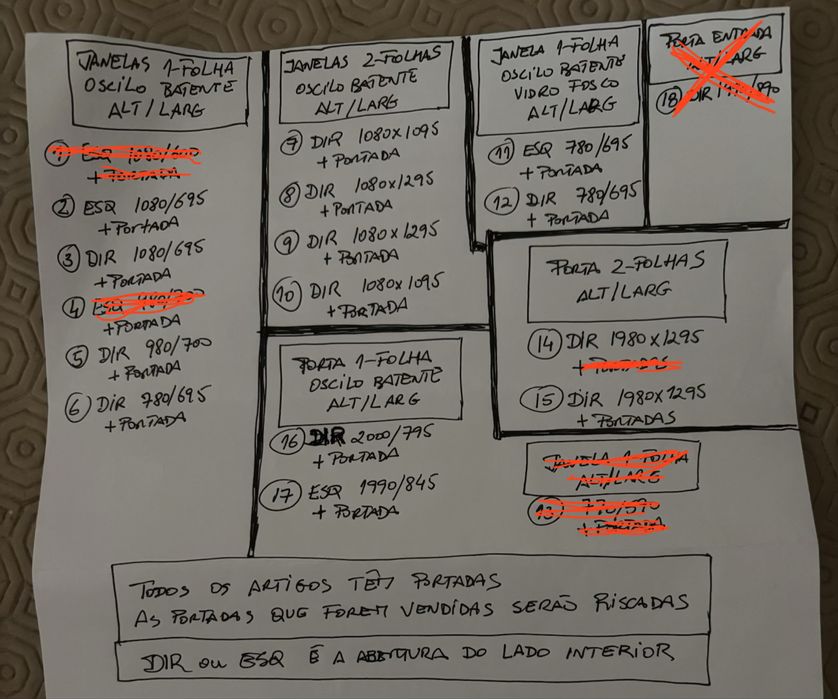 JANELAS 1-FOLHA
OSCILO BATENTE
ALT/LARG
1 ESQ 1080/600
+ PORTADA
2 ESQ 1080/695
+ PORTADA
3 DIR 1080/695
+ PORTADA
4 ESQ
+ PORTADA
5 DIR 980/700
+ PORTADA
6 DIR 780/695
+ PORTADA
JANELAS 2-FOLHAS
OSCILO BATENTE
ALT/LARG
7 DIR 1080x1095
+ PORTADA
8 DIR 1080x1295
+ PORTADA
9 DIR 1080x1295
+ PORTADA
10 DIR 1080x1095
+ PORTADA
JANELA 1-FOLHA
OSCILO BATENTE
VIDRO FOSCO
ALT/LARG
11 ESQ 780/695
+ PORTADA
12 DIR 780/695
+ PORTADA
PORTA ENTRADA
ALT/LARG
18 DIR
PORTA 2-FOLHAS
ALT/LARG
14 DIR 1980x1295
+ PORTADAS
15 DIR 1980x1295
+ PORTADAS
PORTA 1-FOLHA
OSCILO BATENTE
ALT/LARG
16 DIR 2000/795
+ PORTADA
17 ESQ 1990/845
+ PORTADA
JANELA 1-FOLHA
ALT/LARG
13 770/590
+ PORTADA
TODOS OS ARTIGOS TÊM PORTADAS
AS PORTADAS QUE FOREM VENDIDAS SERÃO RISCADAS
DIR ou ESQ É A ABERTURA DO LADO INTERIOR